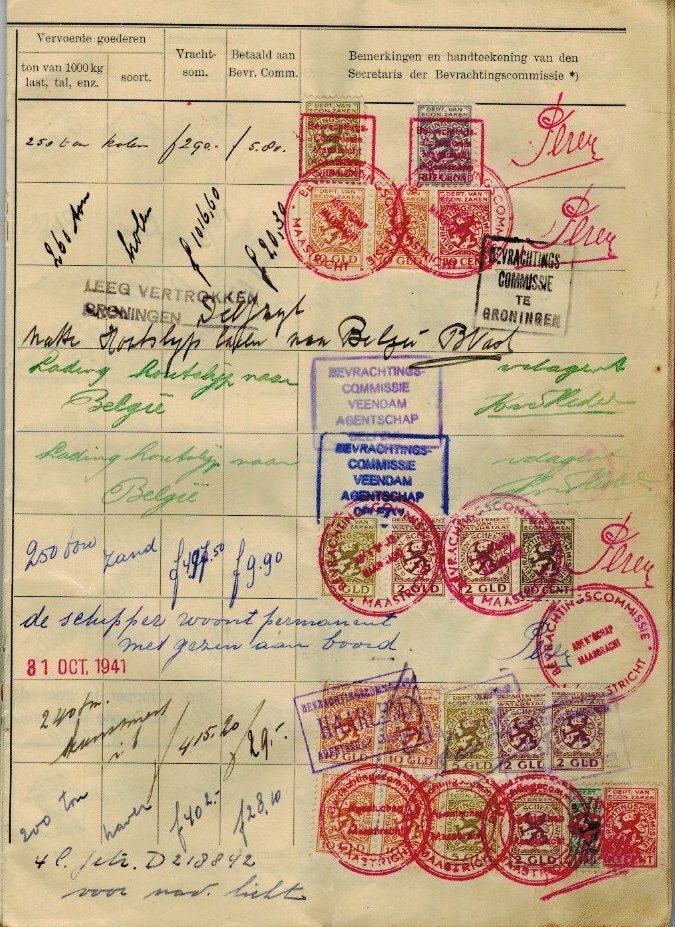 Vervoerde goederen
Vracht-
som.
Betaald aan
Bevr. Comm.
Bemerkingen en handteekening van den
Secretaris der Bevrachtingscommissie *)
ton van 1000 kg
last, tal, enz.
soort.
250 ton kolen f 290.- f 5.80.
DEPT. VAN
ECON. ZAKEN
DEPT. VAN
ECON. ZAKEN
260 ton kolen f 1016.60 f 20.30
BEVRACHTINGSCOMM
MAASTRICHT
GLD
CENT
LEEG VERTROKKEN
GRONINGEN Delfzijl
BEVRACHTINGS
COMMISSIE
TE
GRONINGEN
natte Houtslijp laden naar België
Lading houtslijp naar
België
BEVRACHTINGS-
COMMISSIE
VEENDAM
AGENTSCHAP
Lading houtslijp naar
België
BEVRACHTINGS-
COMMISSIE
VEENDAM
AGENTSCHAP
250 ton zand f 497.50 f 9.90
BEVRACHTINGSCOMM
MAASTRICHT
2 GLD
2 GLD
CENT
de schipper woont permanent
met gezin aan boord.
BEVRACHTINGSCOMMISSIE
AGENTSCHAP
MAASBRACHT
MAASTRICHT
31 OCT. 1941
240 tn. kunstmest f 415.20 f 29.-
HAARLEM
10 GLD
5 GLD
2 GLD
2 GLD
200 ton haver f 402.- f 28.10
MAASTRICHT
2 GLD
DEPT. VAN
ECON. ZAKEN
CENT
4 l. petr. D218842
voor nav. licht